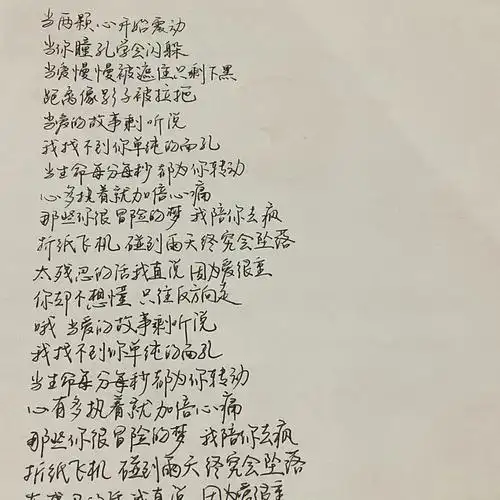 当两颗心开始震动
当你瞳孔学会闪躲
当爱慢慢被遮住只剩下黑
距离像影子被拉拖
当爱的故事剩听说
我找不到你单纯的面孔
当生命每分每秒都为你转动
心多执着就加倍心痛
那些你很冒险的梦 我陪你去疯
折纸飞机 碰到雨天终究会坠落
太残忍的话我直说 因为爱很重
你却不想懂 只往反方向走
哦 当爱的故事剩听说
我找不到你单纯的面孔
当生命每分每秒都为你转动
心有多执着就加倍心痛
那些你很冒险的梦 我陪你去疯
折纸飞机 碰到雨天终究会坠落
太残忍的话我直说 因为爱很重